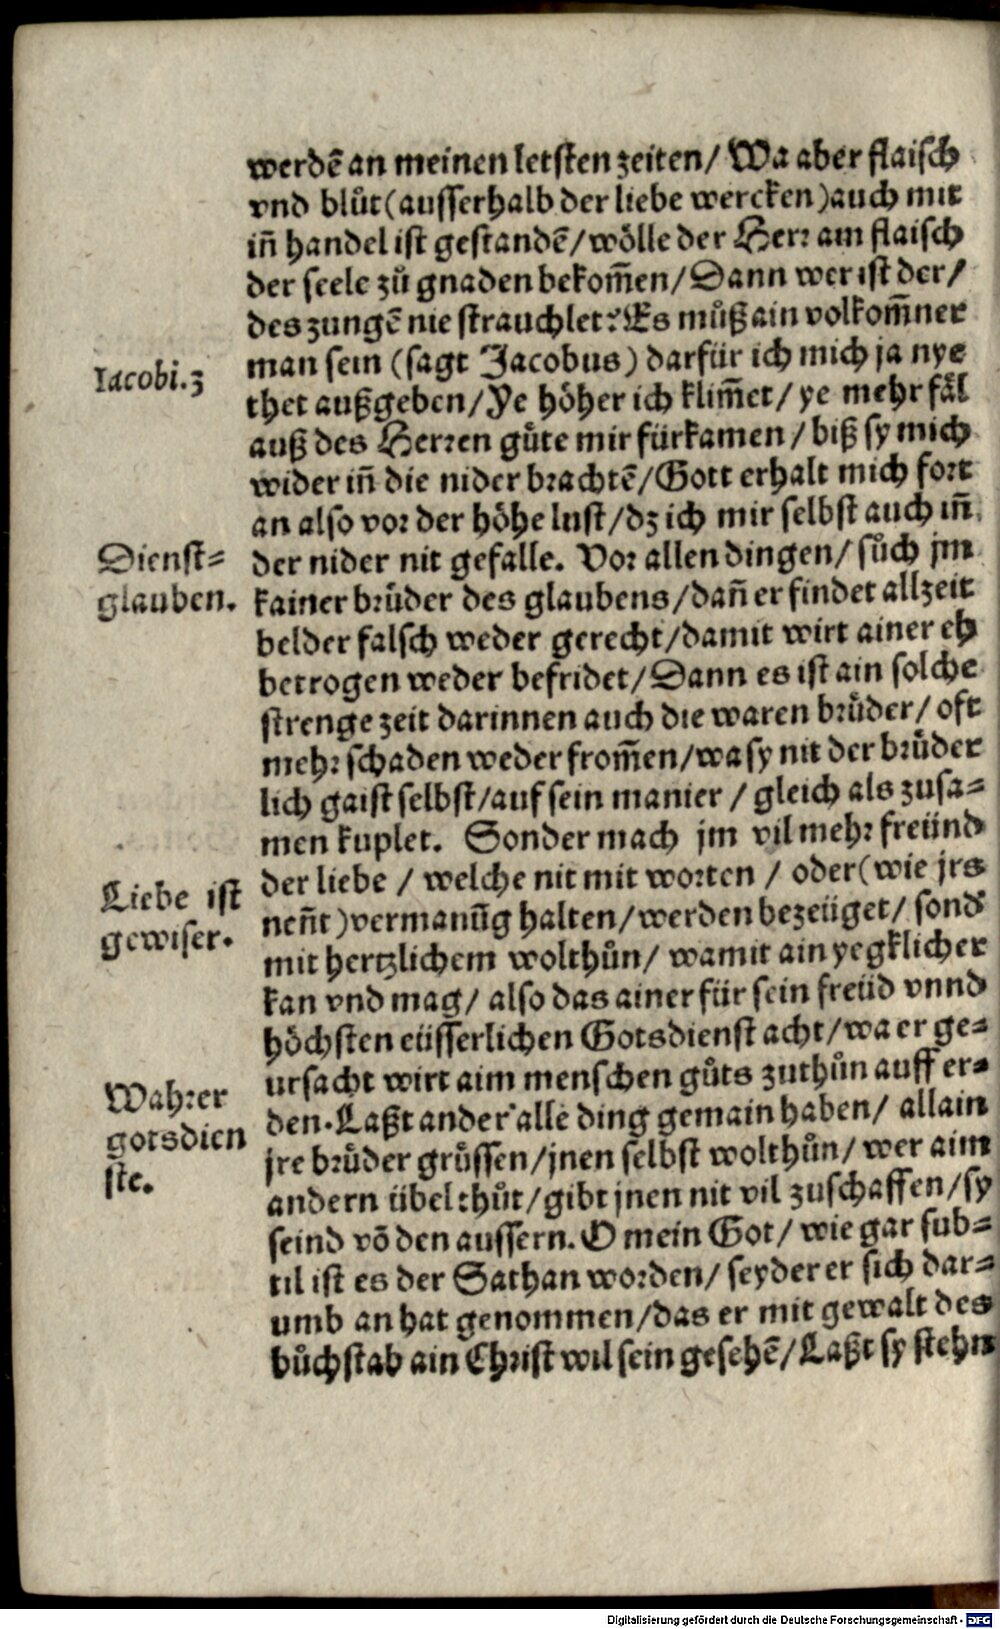 werdẽ an meinen letsten zeiten/ Wa aber flaisch
vnd blůt (ausserhalb der liebe wercken) auch mit
iñ handel ist gestandẽ/ wölle der Herr am flaisch
der seele zů gnaden bekom̃en/ Dann wer ist der/
des zungẽ nie strauchlet? Es můß ain volkom̃ner
Iacobi. 3
man sein (sagt Jacobus) darfür ich mich ja nye
thet außgeben/ Ye höher ich klim̃et/ ye mehr fäl
auß des Herren gůte mir fürkamen/ biß sy mich
wider iñ die nider brachtẽ/ Gott erhalt mich fort
an also vor der höhe lust/ dz ich mir selbst auch iñ
Dienst=
glauben.
der nider nit gefalle. Vor allen dingen/ sůch jm
kainer brüder des glaubens/ dañ er findet allzeit
belder falsch weder gerecht/ damit wirt ainer eh
betrogen weder befridet/ Dann es ist ain solche
strenge zeit darinnen auch die waren brüder/ oft
mehr schaden weder from̃en/ wa sy nit der brüder
lich gaist selbst/ auf sein manier/ gleich als zusa=
men kuplet. Sonder mach jm vil mehr freünd
Liebe ist
gewiser.
der liebe/ welche nit mit worten/ oder (wie jrs
neñt) vermanũg halten/ werden bezeüget/ sond'
mit hertzlichem wolthůn/ wamit ain yegklicher
kan vnd mag/ also das ainer für sein freüd vnnd
höchsten eüsserlichen Gotsdienst acht/ wa er ge=
Wahrer
gotsdien
ste.
ursacht wirt aim menschen gůts zuthůn auff er=
den. Laßt ander alle ding gemain haben/ allain
jre brüder grüssen/ jnen selbst wolthůn/ wer aim
andern übel thůt/ gibt jnen nit vil zuschaffen/ sy
seind võ den aussern. O mein Got/ wie gar sub=
til ist es der Sathan worden/ seyder er sich dar=
umb an hat genommen/ das er mit gewalt des
bůchstab ain Christ wil sein gesehẽ/ Laßt sy stehn
Digitalisierung gefördert durch die Deutsche Forschungsgemeinschaft - DFG